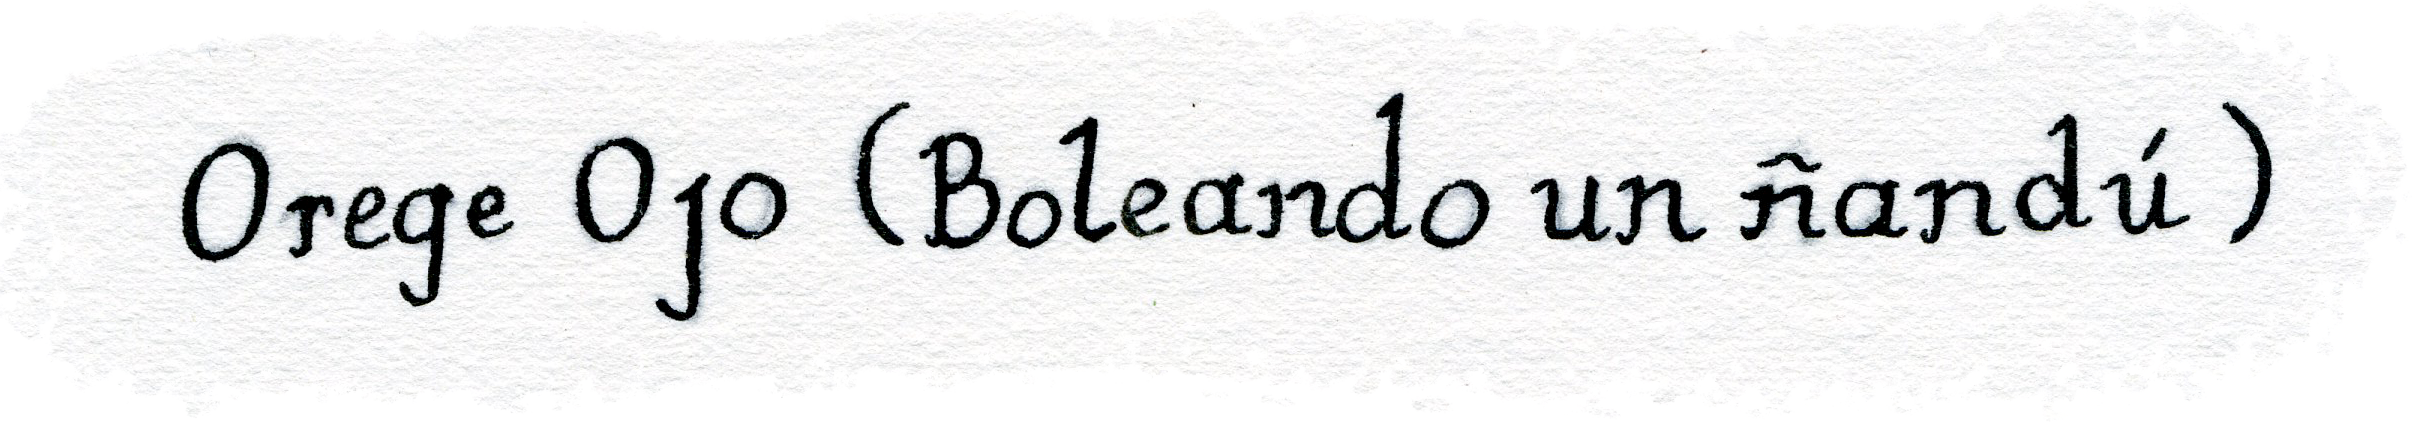 Orege Ojo (Boleando un ñandú)